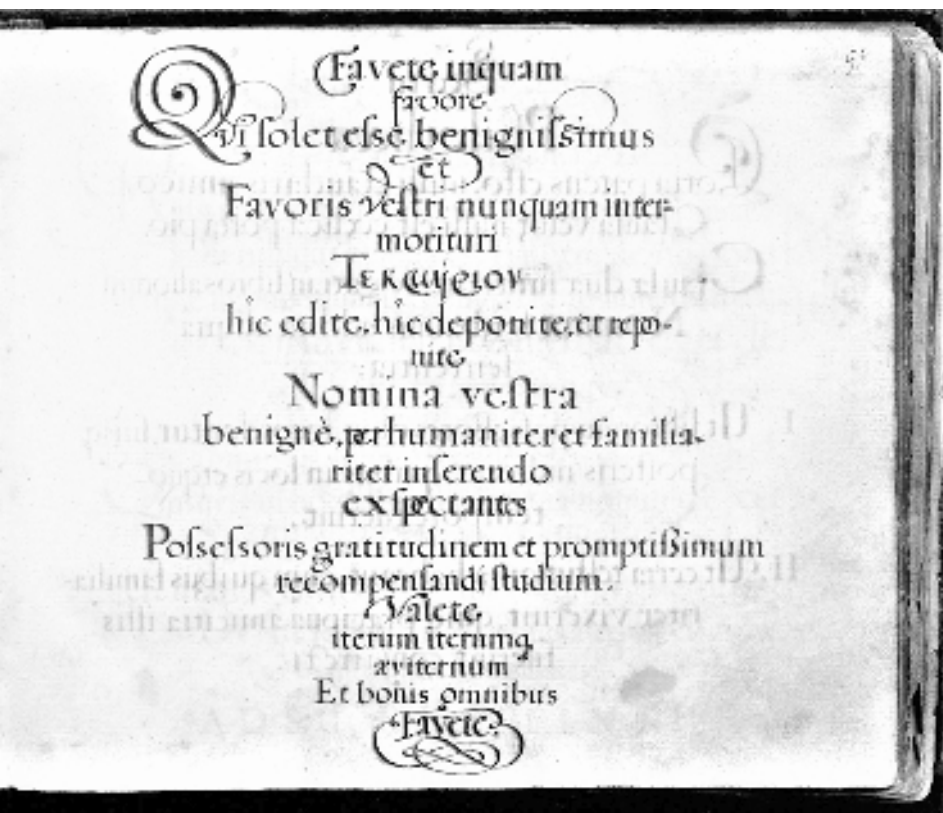 Favete inquam
favore
Qvi solet esse benignissimus
et
Favoris vestri nunquam inter-
morituri
Τεκμήριον
hic edite, hic deponite, et repo-
nite
Nomina vestra
benignè, perhumaniter et familia-
riter inserendo
exspectantes
Possessoris gratitudinem et promptißimum
recompensandi studium.
Valete
iterum iterumq,
æviternum
Et bonis omnibus
Favete.